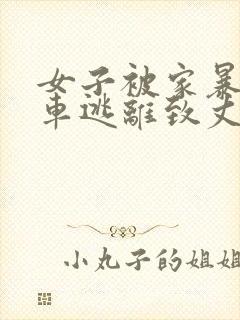 女子被家暴
車逃離致丈
小丸子的姐姐